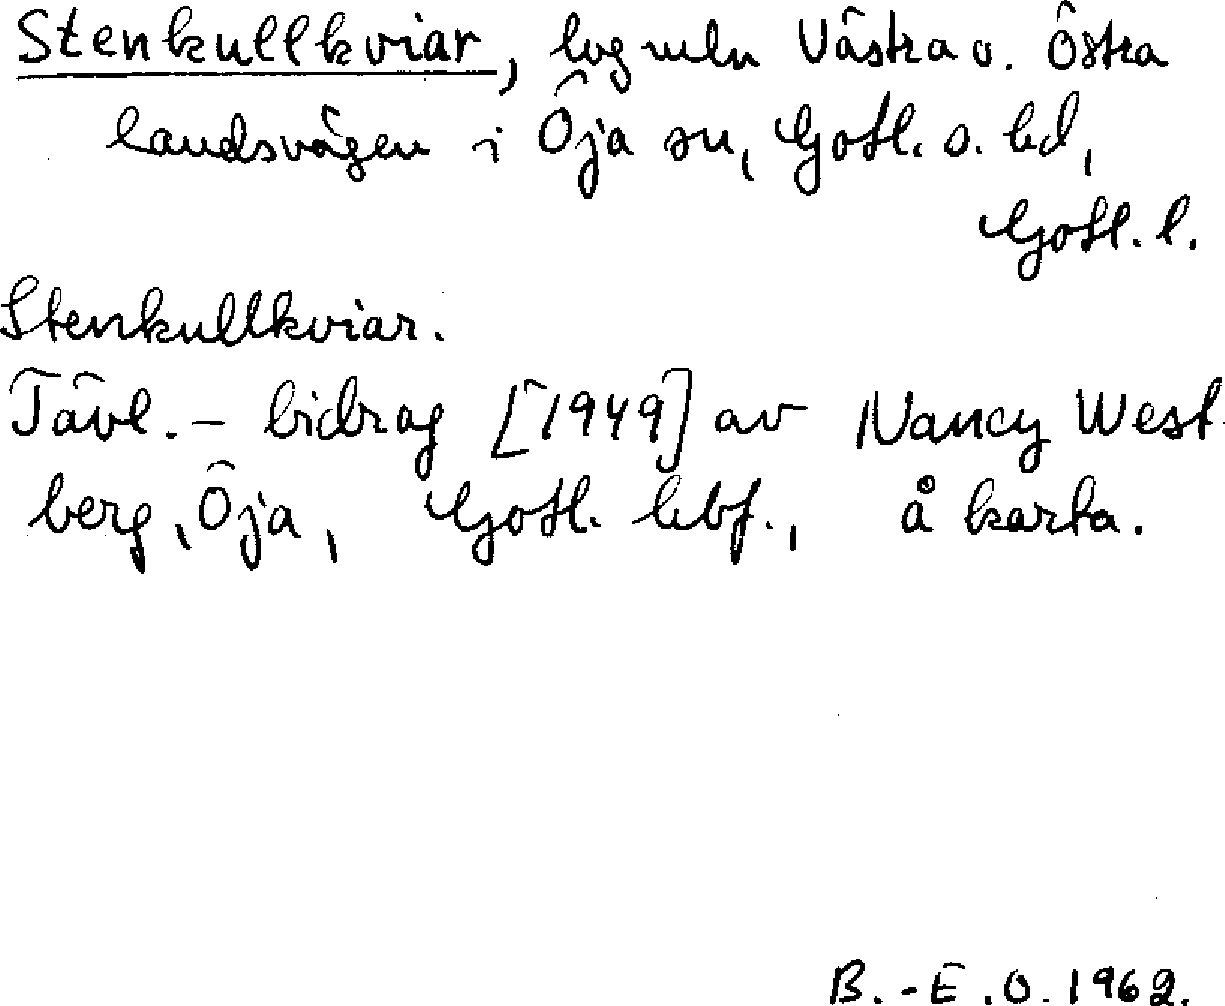 Stenkullkviar, log meln Västra o. Östra
landsvägen i Öja sn, Gotl. s. hd,
Gotl. l.
Stenkullkviar.
Tävl. – bidrag [1949] av Nancy West-
berg, Öja, Gotl. hbf., å karta.
B.-E.O. 1962.